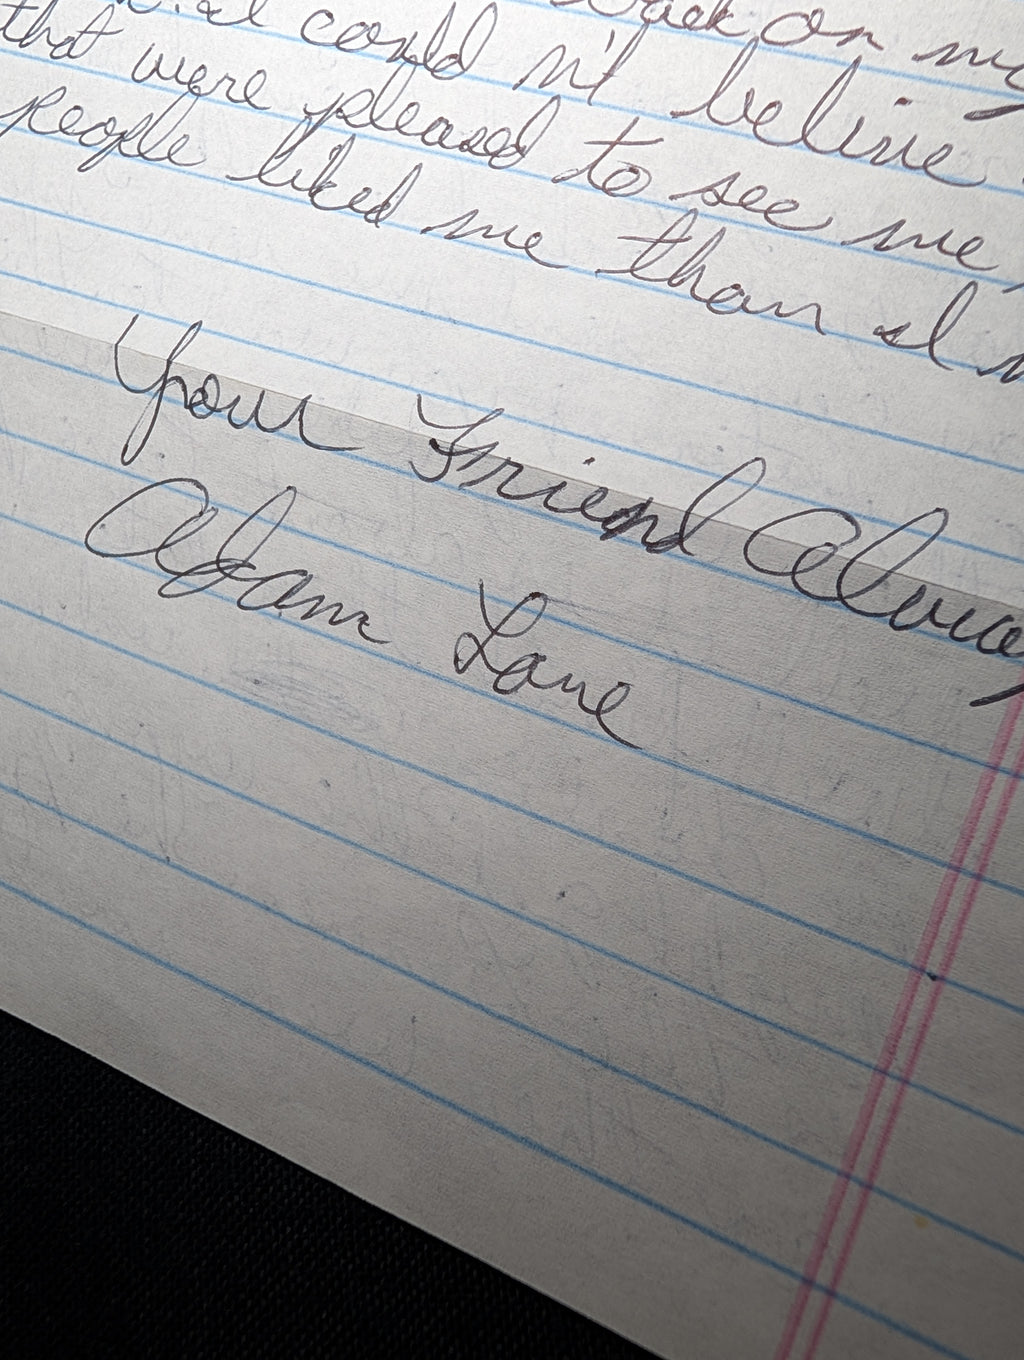 back on my
I could n't believe
that were pleased to see me,
people liked me than I
Your Friend Alway
Adam Lane